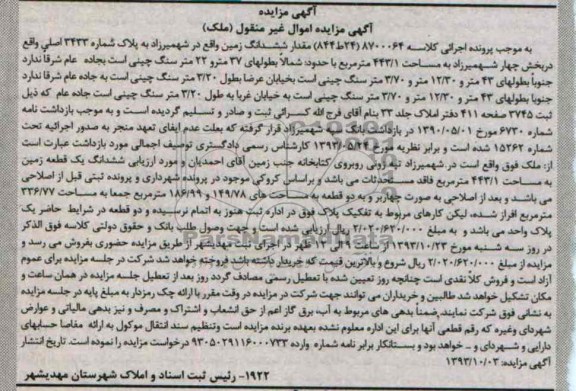 آگهی مزایده
آگهی مزایده اموال غیر منقول (ملک)
به موجب پرونده اجرائی کلاسه ۸۷۰۰۰۶۴ (۲۴ط۸۴۴) مقدار ششدانگ زمین واقع در شهمیرزاد به پلاک شماره ۳۴۳۳ اصلی واقع
دربخش چهار شهمیرزاد به مساحت ۴۴۳/۱ مترمربع با حدود: شمالاً بطولهای ۳۷ متر و ۲۲ متر سنگ چینی است بجاده عام شرقا ندارد
جنوباً بطولهای ۴۳ متر و ۱۲/۳۰ متر و ۳/۷۰ متر سنگ چینی است بخیابان عرضا بطول ۳/۲۰ متر سنگ چینی است به جاده عام شرقا ندارد
جنوبا بطولهای ۴۳ متر و ۱۲/۳۰ متر و ۳/۷۰ متر سنگ چینی است به خیابان غربا به طول ۳/۲۰ متر سنگ چینی است به جاده عام که ذیل
ثبت ۳۷۴۵ صفحه ۴۱۱ دفتر املاک جلد ۳۳ بنام آقای فرج الله کسرائی ثبت و صادر و تسلیم گردیده است و به موجب بازداشت نامه
شماره ۶۷۳۰ مورخ ۱۳۹۰/۰۵/۰۱ در بازداشت بانک ملی شهمیرزاد قرار گرفته که بعلت عدم ایفای تعهد منجر به صدور اجرائیه تحت
شماره ۱۵۲۶۲ شده است و برابر نظریه مورخ ۱۳۹۳/۰۵/۲۴ کارشناس رسمی دادگستری توصیف اجمالی مورد بازداشت عبارت است
از: ملک فوق واقع است در شهمیرزاد تپه روبی روبروی کتابخانه جنب زمین آقای احمدیان و مورد ارزیابی ششدانگ یک قطعه زمین
به مساحت ۴۴۳/۱ مترمربع فاقد مستحدثات می باشد و براساس کروکی موجود در پرونده شهرداری و پرونده ثبتی قبل از اصلاحی
می باشد و بعد از اصلاحی به صورت چهاربر و به دو قطعه به مساحت های ۱۴۹/۷۸ و ۱۸۶/۹۹ مترمربع جمعا به مساحت ۳۳۶/۷۷
مترمربع افراز شده، لیکن کارهای مربوط به تفکیک پلاک فوق در اداره ثبت هنوز به اتمام نرسیده و دو قطعه در شرایط حاضر یک
پلاک واحد می باشد و به مبلغ ۲/۰۲۰/۶۲۰/۰۰۰ ریال ارزیابی شده است و جهت وصول طلب بانک و حقوق دولتی کلاسه فوق الذکر
در روز سه شنبه مورخ ۱۳۹۳/۱۰/۲۳ از ساعت ۹ الی ۱۲ ظهر در اجرای ثبت مهدیشهر از طریق مزایده حضوری بفروش می رسد و
مزایده از مبلغ ۲/۰۲۰/۶۲۰/۰۰۰ ریال شروع و بالاترین قیمت که خریدار داشته باشد فروخته خواهد شد شرکت در جلسه مزایده برای عموم
آزاد است و فروش کلاً نقدی است چنانچه روز تعیین شده با تعطیل رسمی مصادف گردد روز بعد از تعطیل جلسه مزایده در همان ساعت و
مکان تشکیل خواهد شد طالبین و خریداران می توانند جهت شرکت در مزایده در وقت مقرر با ارائه چک رمزدار به مبلغ پایه در جلسه مزایده
به نشانی فوق شرکت نمایند.ضمناً بدهی های مربوط به آب، برق گاز اعم از حق انشعاب و اشتراک و مصرف و نیز بدهی مالیاتی و عوارض
شهرداری وغیره که رقم قطعی آنها برای این اداره معلوم نشده بعهده برنده مزایده است وتنظیم سند انتقال موکول به ارائه مفاصا حسابهای
دارایی و شهرداری و ... خواهد بود و بستانکار برابر نامه شماره وارده ۹۳۰۵۰۲۹۱۱۶۰۰۰۷۳۳ درخواست مزایده را نموده است. تاریخ انتشار
آگهی مزایده: ۱۳۹۳/۱۰/۰۳
۱۹۲۲- رئیس ثبت اسناد و املاک شهرستان مهدیشهر